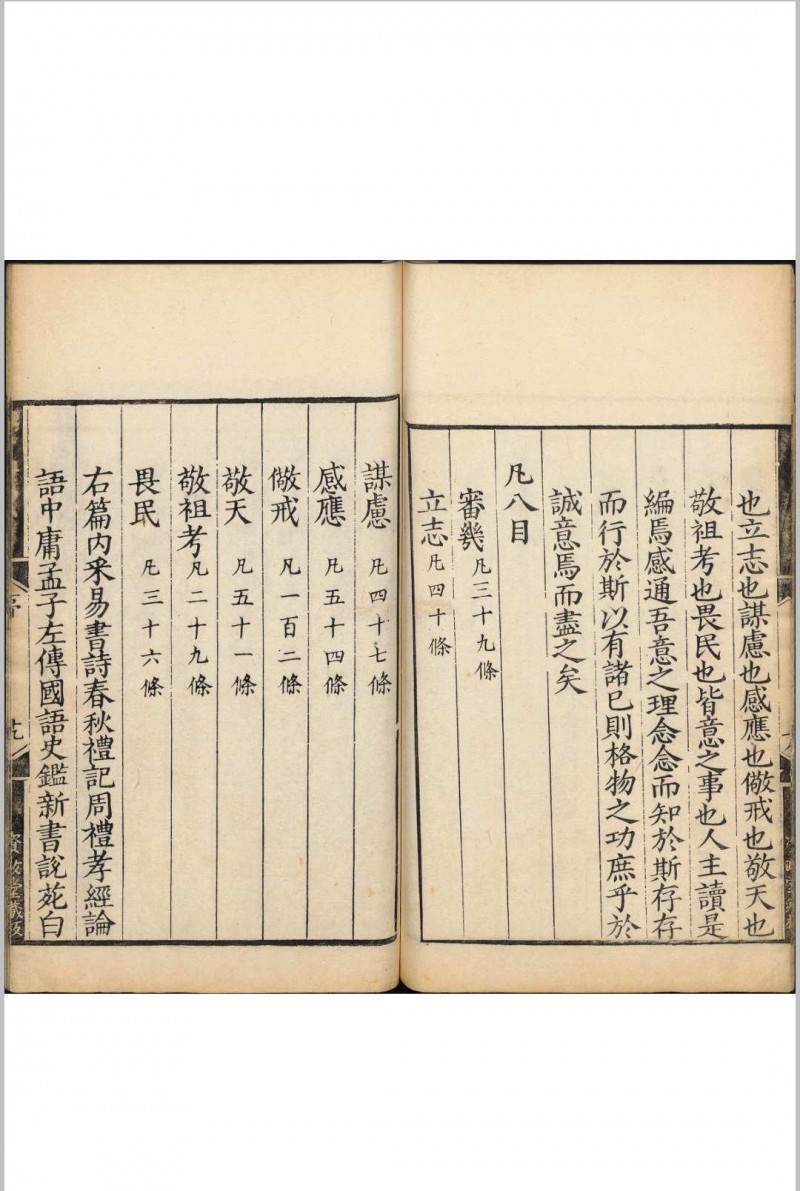 也立志也謀慮也感應也儆戒也敬天也
敬祖考也畏民也皆意之事也人主讀是
編焉感通吾意之理念念而知於斯存存
而行於斯以有諸已則格物之功庶乎於
誠意焉而盡之矣
凡八目
審幾凡三十九條
立志凡四十條
謀慮 凡四十七條
感應 凡五十四條
儆戒 凡一百二條
敬天 凡五十一條
敬祖考凡二十九條
畏民 凡三十六條
右篇内采易書詩春秋禮記周禮孝經論
語中庸孟子左傳國語史鑑新書說苑白
序
資政堂藏板